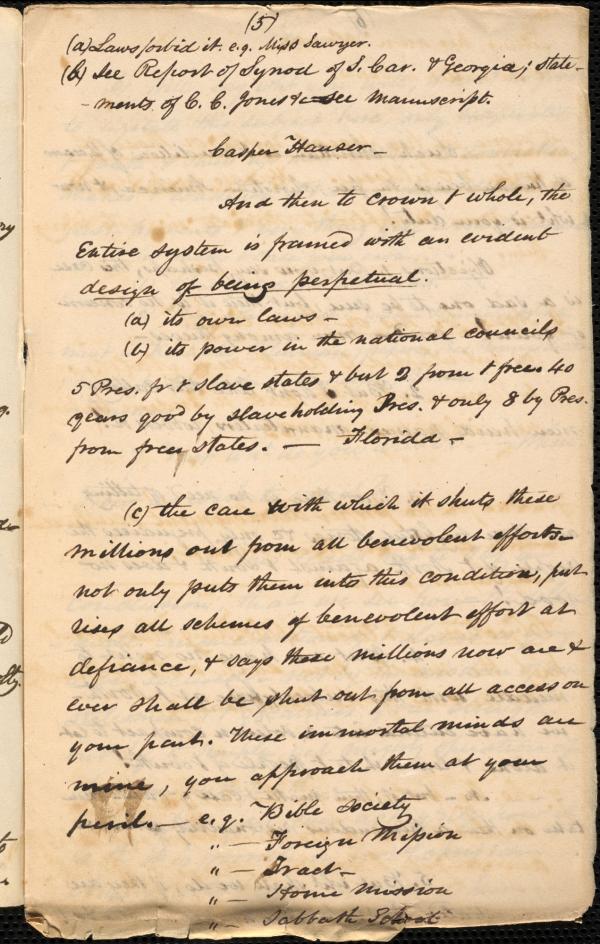 (5)
(a) Laws forbid it. e.g. Miss Sawyer.
(b) See Report of Synod of S. Car. & Georgia; state-
-ments of C. C. Jones &c see manuscript.
Casper Hauser -
And then to crown t whole, the
Entire system is framed with an evident
design of being perpetual.
(a) its own laws -
(b) its power in the national councils
5 Pres. fr t slave states & but 2 from t free. 40
years govd by slaveholding Pres. & only 8 by Pres.
from free states. — Florida -
(c) the care with which it shuts these
millions out from all benevolent efforts -
not only puts them into this condition, but
rises all schemes of benevolent effort at
defiance, & says these millions now are &
ever shall be shut out from all access on
your part. These immortal minds are
mine, you approach them at your
peril. — e.g. Bible Society
" — Foreign Mission
" — Tract -
" — Home Mission
" — Sabbath School